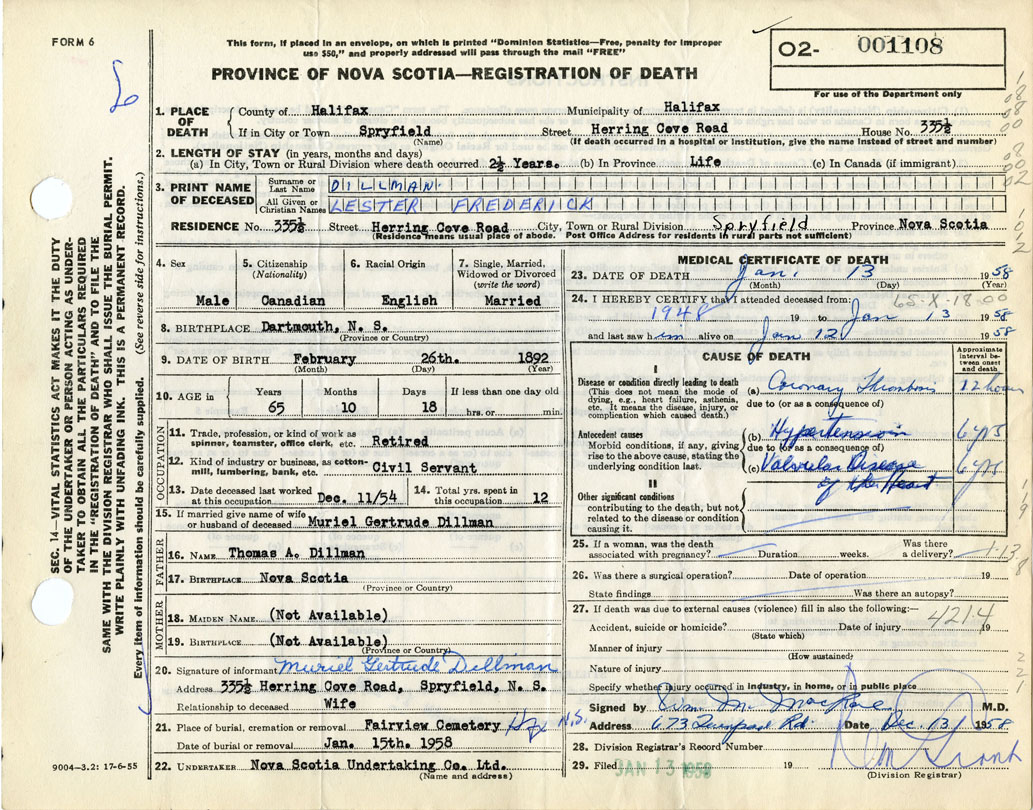 FORM 6
This form, if placed in an envelope, on which is printed "Dominion Statistics—Free, penalty for improper
use $50," and properly addressed will pass through the mail "FREE"
PROVINCE OF NOVA SCOTIA—REGISTRATION OF DEATH
02- 001108
For use of the Department only
1. PLACE OF DEATH
County of Halifax Municipality of Halifax
If in City or Town Spryfield Street Herring Cove Road House No. 335½
(Name) (If death occurred in a hospital or institution, give the name instead of street and number)
2. LENGTH OF STAY (in years, months and days)
(a) In City, Town or Rural Division where death occurred 2½ Years. (b) In Province Life (c) In Canada (if immigrant)
3. PRINT NAME OF DECEASED
Surname or Last Name DILLMAN
All Given or Christian Names LESTER FREDERICK
RESIDENCE No. 335½ Street Herring Cove Road City, Town or Rural Division Spryfield Province Nova Scotia
(Residence means usual place of abode. Post Office Address for residents in rural parts not sufficient)
4. Sex Male
5. Citizenship (Nationality) Canadian
6. Racial Origin English
7. Single, Married, Widowed or Divorced (write the word) Married
8. BIRTHPLACE Dartmouth, N. S.
(Province or Country)
9. DATE OF BIRTH February 26th. 1892
(Month) (Day) (Year)
10. AGE in Years 65 Months 10 Days 18 If less than one day old hrs. or min.
OCCUPATION
11. Trade, profession, or kind of work as spinner, teamster, office clerk, etc. Retired
12. Kind of industry or business, as cotton-mill, lumbering, bank, etc. Civil Servant
13. Date deceased last worked at this occupation Dec. 11/54
14. Total yrs. spent in this occupation 12
15. If married give name of wife or husband of deceased Muriel Gertrude Dillman
FATHER
16. NAME Thomas A. Dillman
17. BIRTHPLACE Nova Scotia
(Province or Country)
MOTHER
18. MAIDEN NAME (Not Available)
19. BIRTHPLACE (Not Available)
(Province or Country)
20. Signature of informant Muriel Gertrude Dillman
Address 335½ Herring Cove Road, Spryfield, N. S.
Relationship to deceased Wife
21. Place of burial, cremation or removal Fairview Cemetery Hfx N.S.
Date of burial or removal Jan. 15th. 1958
22. UNDERTAKER Nova Scotia Undertaking Co. Ltd.
(Name and address)
MEDICAL CERTIFICATE OF DEATH
23. DATE OF DEATH Jan. 13 1958
(Month) (Day) (Year)
24. I HEREBY CERTIFY that I attended deceased from:
65-X-18-00
1948 19 to Jan 13 1958
and last saw him alive on Jan 12 1958
CAUSE OF DEATH
Approximate interval between onset and death
I
Disease or condition directly leading to death
(This does not mean the mode of dying, e.g., heart failure, asthenia, etc. It means the disease, injury, or complication which caused death.)
(a) Coronary Thrombosis 12 hours
due to (or as a consequence of)
Antecedent causes
Morbid conditions, if any, giving rise to the above cause, stating the underlying condition last.
(b) Hypertension 6 yrs
due to (or as a consequence of)
(c) Valvular Disease of the Heart 6 yrs
II
Other significant conditions
contributing to the death, but not related to the disease or condition causing it.
25. If a woman, was the death associated with pregnancy? Duration weeks. Was there a delivery?
26. Was there a surgical operation? Date of operation 19
State findings Was there an autopsy?
27. If death was due to external causes (violence) fill in also the following:—
4214
Accident, suicide or homicide? Date of injury 19
(State which)
Manner of injury
(How sustained)
Nature of injury
Specify whether injury occurred in industry, in home, or in public place
Signed by Wm. M. M.D.
Address 673 Rd. Date Dec. 13 1958
28. Division Registrar's Record Number
29. Filed JAN 13 1958 19
(Division Registrar)
SEC. 14—VITAL STATISTICS ACT MAKES IT THE DUTY
OF THE UNDERTAKER OR PERSON ACTING AS UNDER-
TAKER TO OBTAIN ALL THE PARTICULARS REQUIRED
IN THE "REGISTRATION OF DEATH" AND TO FILE THE
SAME WITH THE DIVISION REGISTRAR WHO SHALL ISSUE THE BURIAL PERMIT.
WRITE PLAINLY WITH UNFADING INK. THIS IS A PERMANENT RECORD.
Every item of information should be carefully supplied. (See reverse side for instructions.)
9004-3.2: 17-6-55